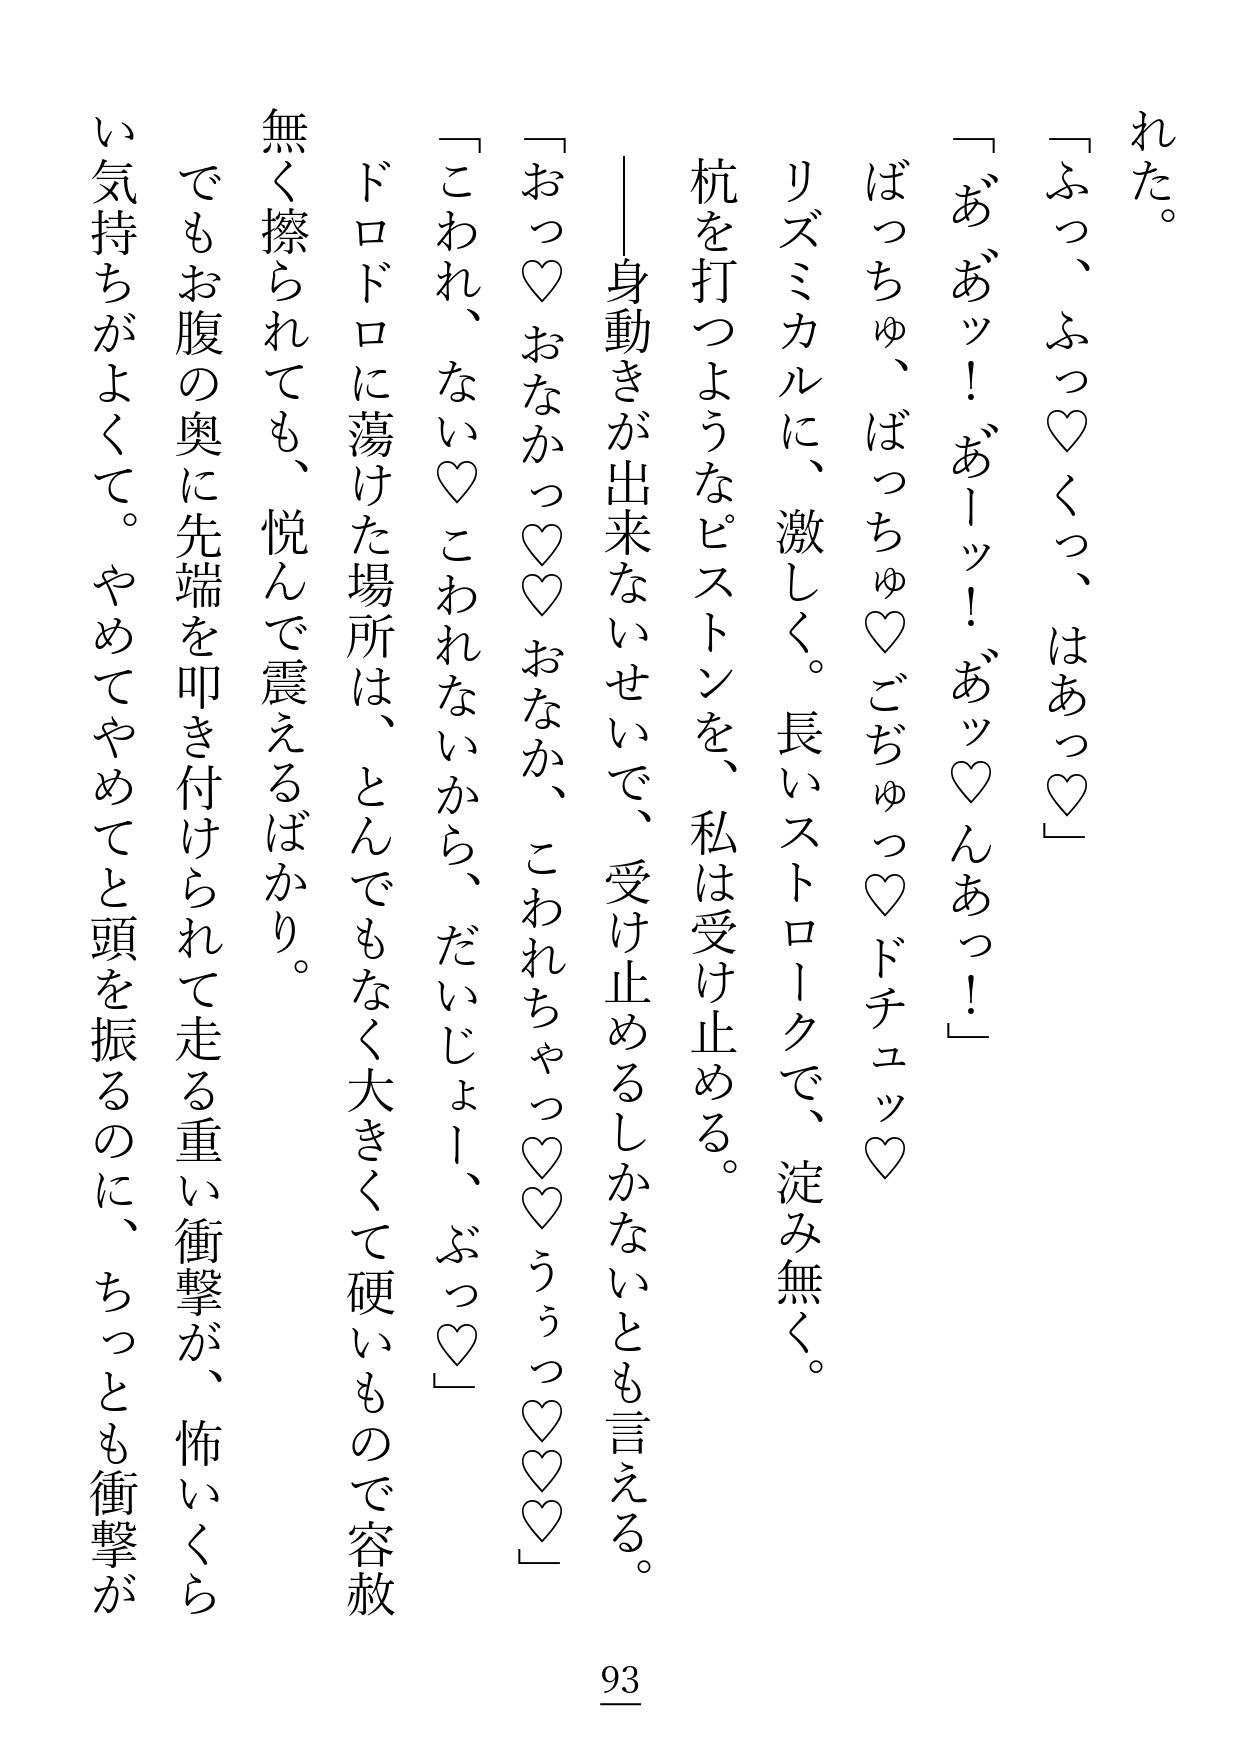 れた。
「ふっ、ふっ♡くっ、はあっ♡」
「あ゙あ゙ッ！あ゙ーッ！あ゙ッ♡んあっ！」
ばっちゅ、ばっちゅ♡ごぢゅっ♡ドチュッ♡
リズミカルに、激しく。長いストロークで、淀み無く。
杭を打つようなピストンを、私は受け止める。
――身動きが出来ないせいで、受け止めるしかないとも言える。
「おっ♡おなかっ♡♡おなか、こわれちゃっ♡♡うぅっ♡♡♡」
「こわれ、ない♡こわれないから、だいじょー、ぶっ♡」
ドロドロに蕩けた場所は、とんでもなく大きくて硬いもので容赦
無く擦られても、悦んで震えるばかり。
でもお腹の奥に先端を叩き付けられて走る重い衝撃が、怖いくら
い気持ちがよくて。やめてやめてと頭を振るのに、ちっとも衝撃が
93